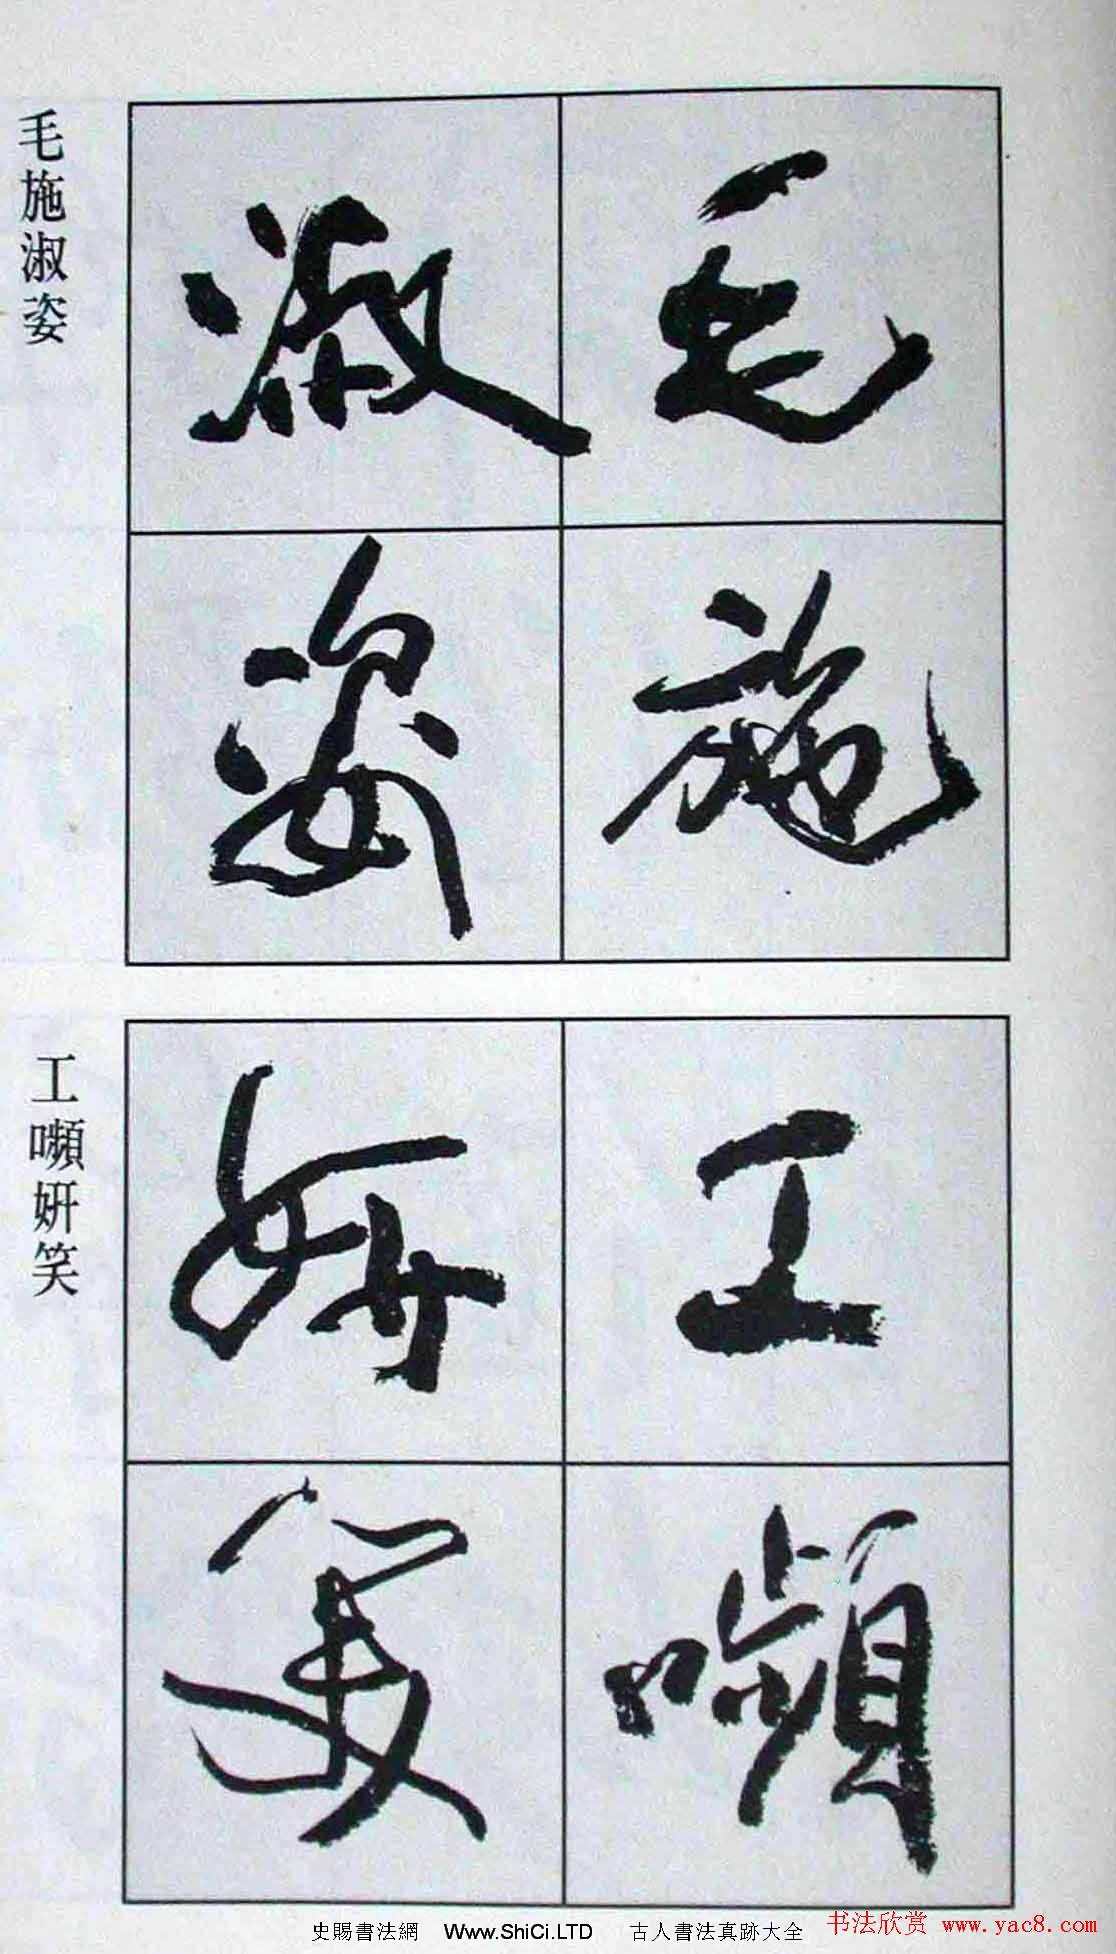 毛施淑姿
毛施
淑姿
工嚬妍笑
工嚬
妍笑
史賜書法網 Www.ShiCi.LTD 古人書法真跡大全
书法欣赏 www.yac8.com